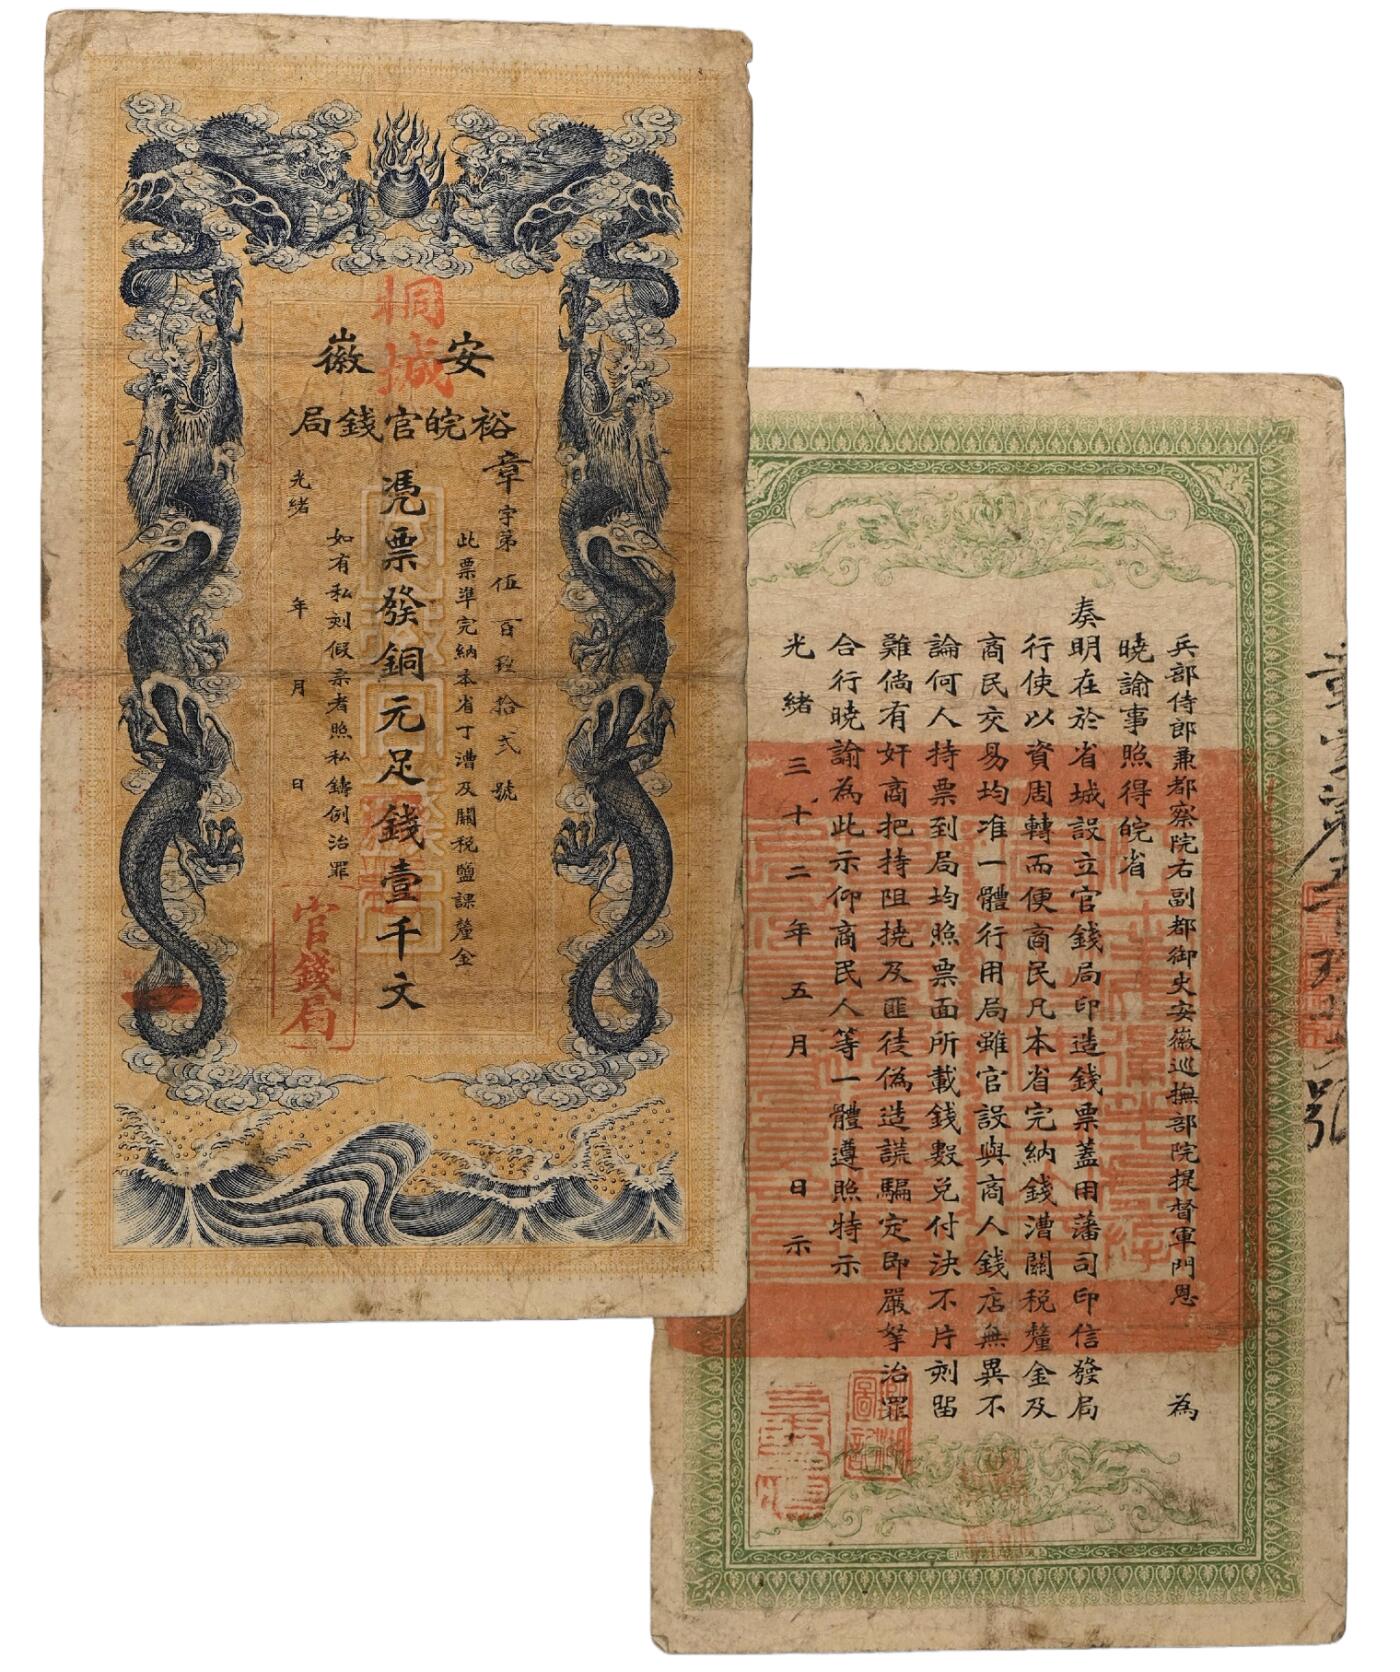 桐城
安徽
裕皖官錢局
章字第伍百玖拾弍號
此票準完納本省丁漕及關稅鹽課釐金
憑票發銅元足錢壹千文
如有私刻假票者照私鑄例治罪
光緒 年 月 日
官錢局
兵部侍郎兼都察院右副都御史安徽巡撫部院提督軍門恩 為
曉諭事照得皖省
奏明在於省城設立官錢局印造錢票蓋用藩司印信發局
行使以資周轉而便商民凡本省完納錢漕關稅釐金及
商民交易均准一體行用局雖官設與商人錢店無異不
論何人持票到局均照票面所載錢數兌付決不片刻留
難倘有奸商把持阻撓及匪徒偽造謊騙定即嚴拏治罪
合行曉諭為此示仰商民人等一體遵照特示
光緒三十二年五月 日示